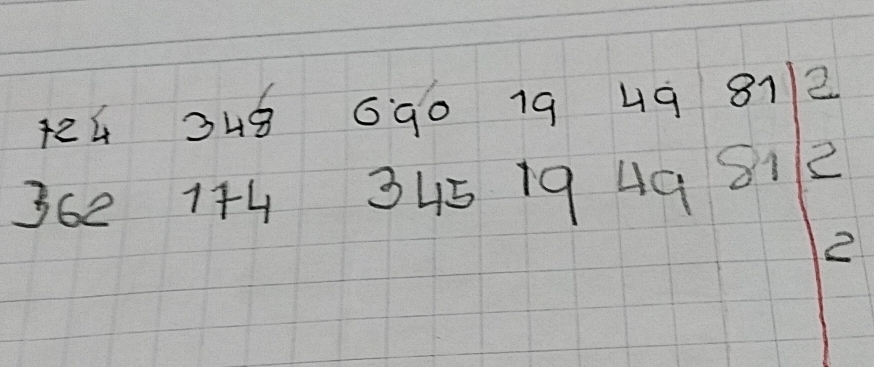 724 348 690 19 49 81 | 2
362 174 345 19 49 81 | 2
2